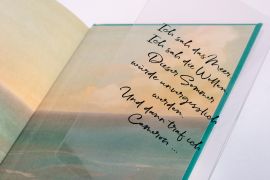 Ich sah das Meer,
Ich sah die Wellen
Dieser Sommer
würde unvergesslich
werden
Und dann traf ich
Cameron ...